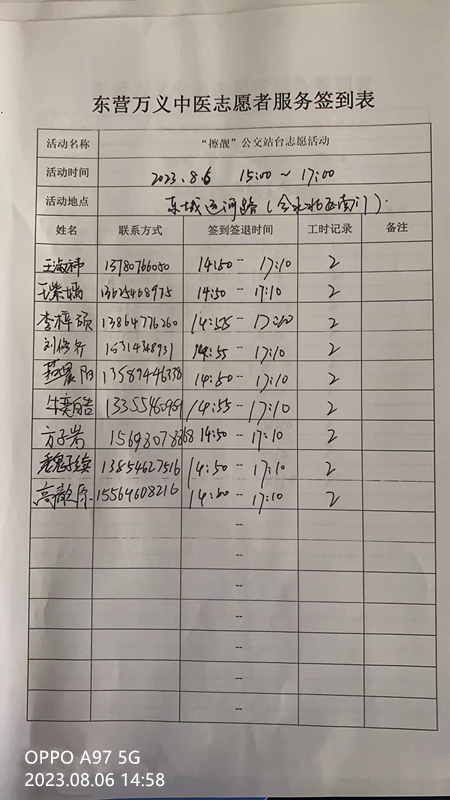 东营万义中医志愿者服务签到表
活动名称 “擦靓”公交站台志愿活动
活动时间 2023.8.6 15:00 ~ 17:00
活动地点 东城运河路(南门).
姓名 联系方式 签到签退时间 工时记录 备注
13780766050 14:50 - 17:10 2
13625468975 14:50 - 17:10 2
李梓硕 13864776260 14:55 - 17:10 2
刘修齐 14:55 - 17:10 2
阳 13589446338 14:50 - 17:10 2
牛奕皓 13355460989 14:55 - 17:10 2
方子岩 14:50 - 17:10 2
魏子续 13854627516 14:50 - 17:10 2
高歆原 15564608216 14:50 - 17:10 2
--
--
--
--
--
--
--
OPPO A97 5G
2023.08.06 14:58